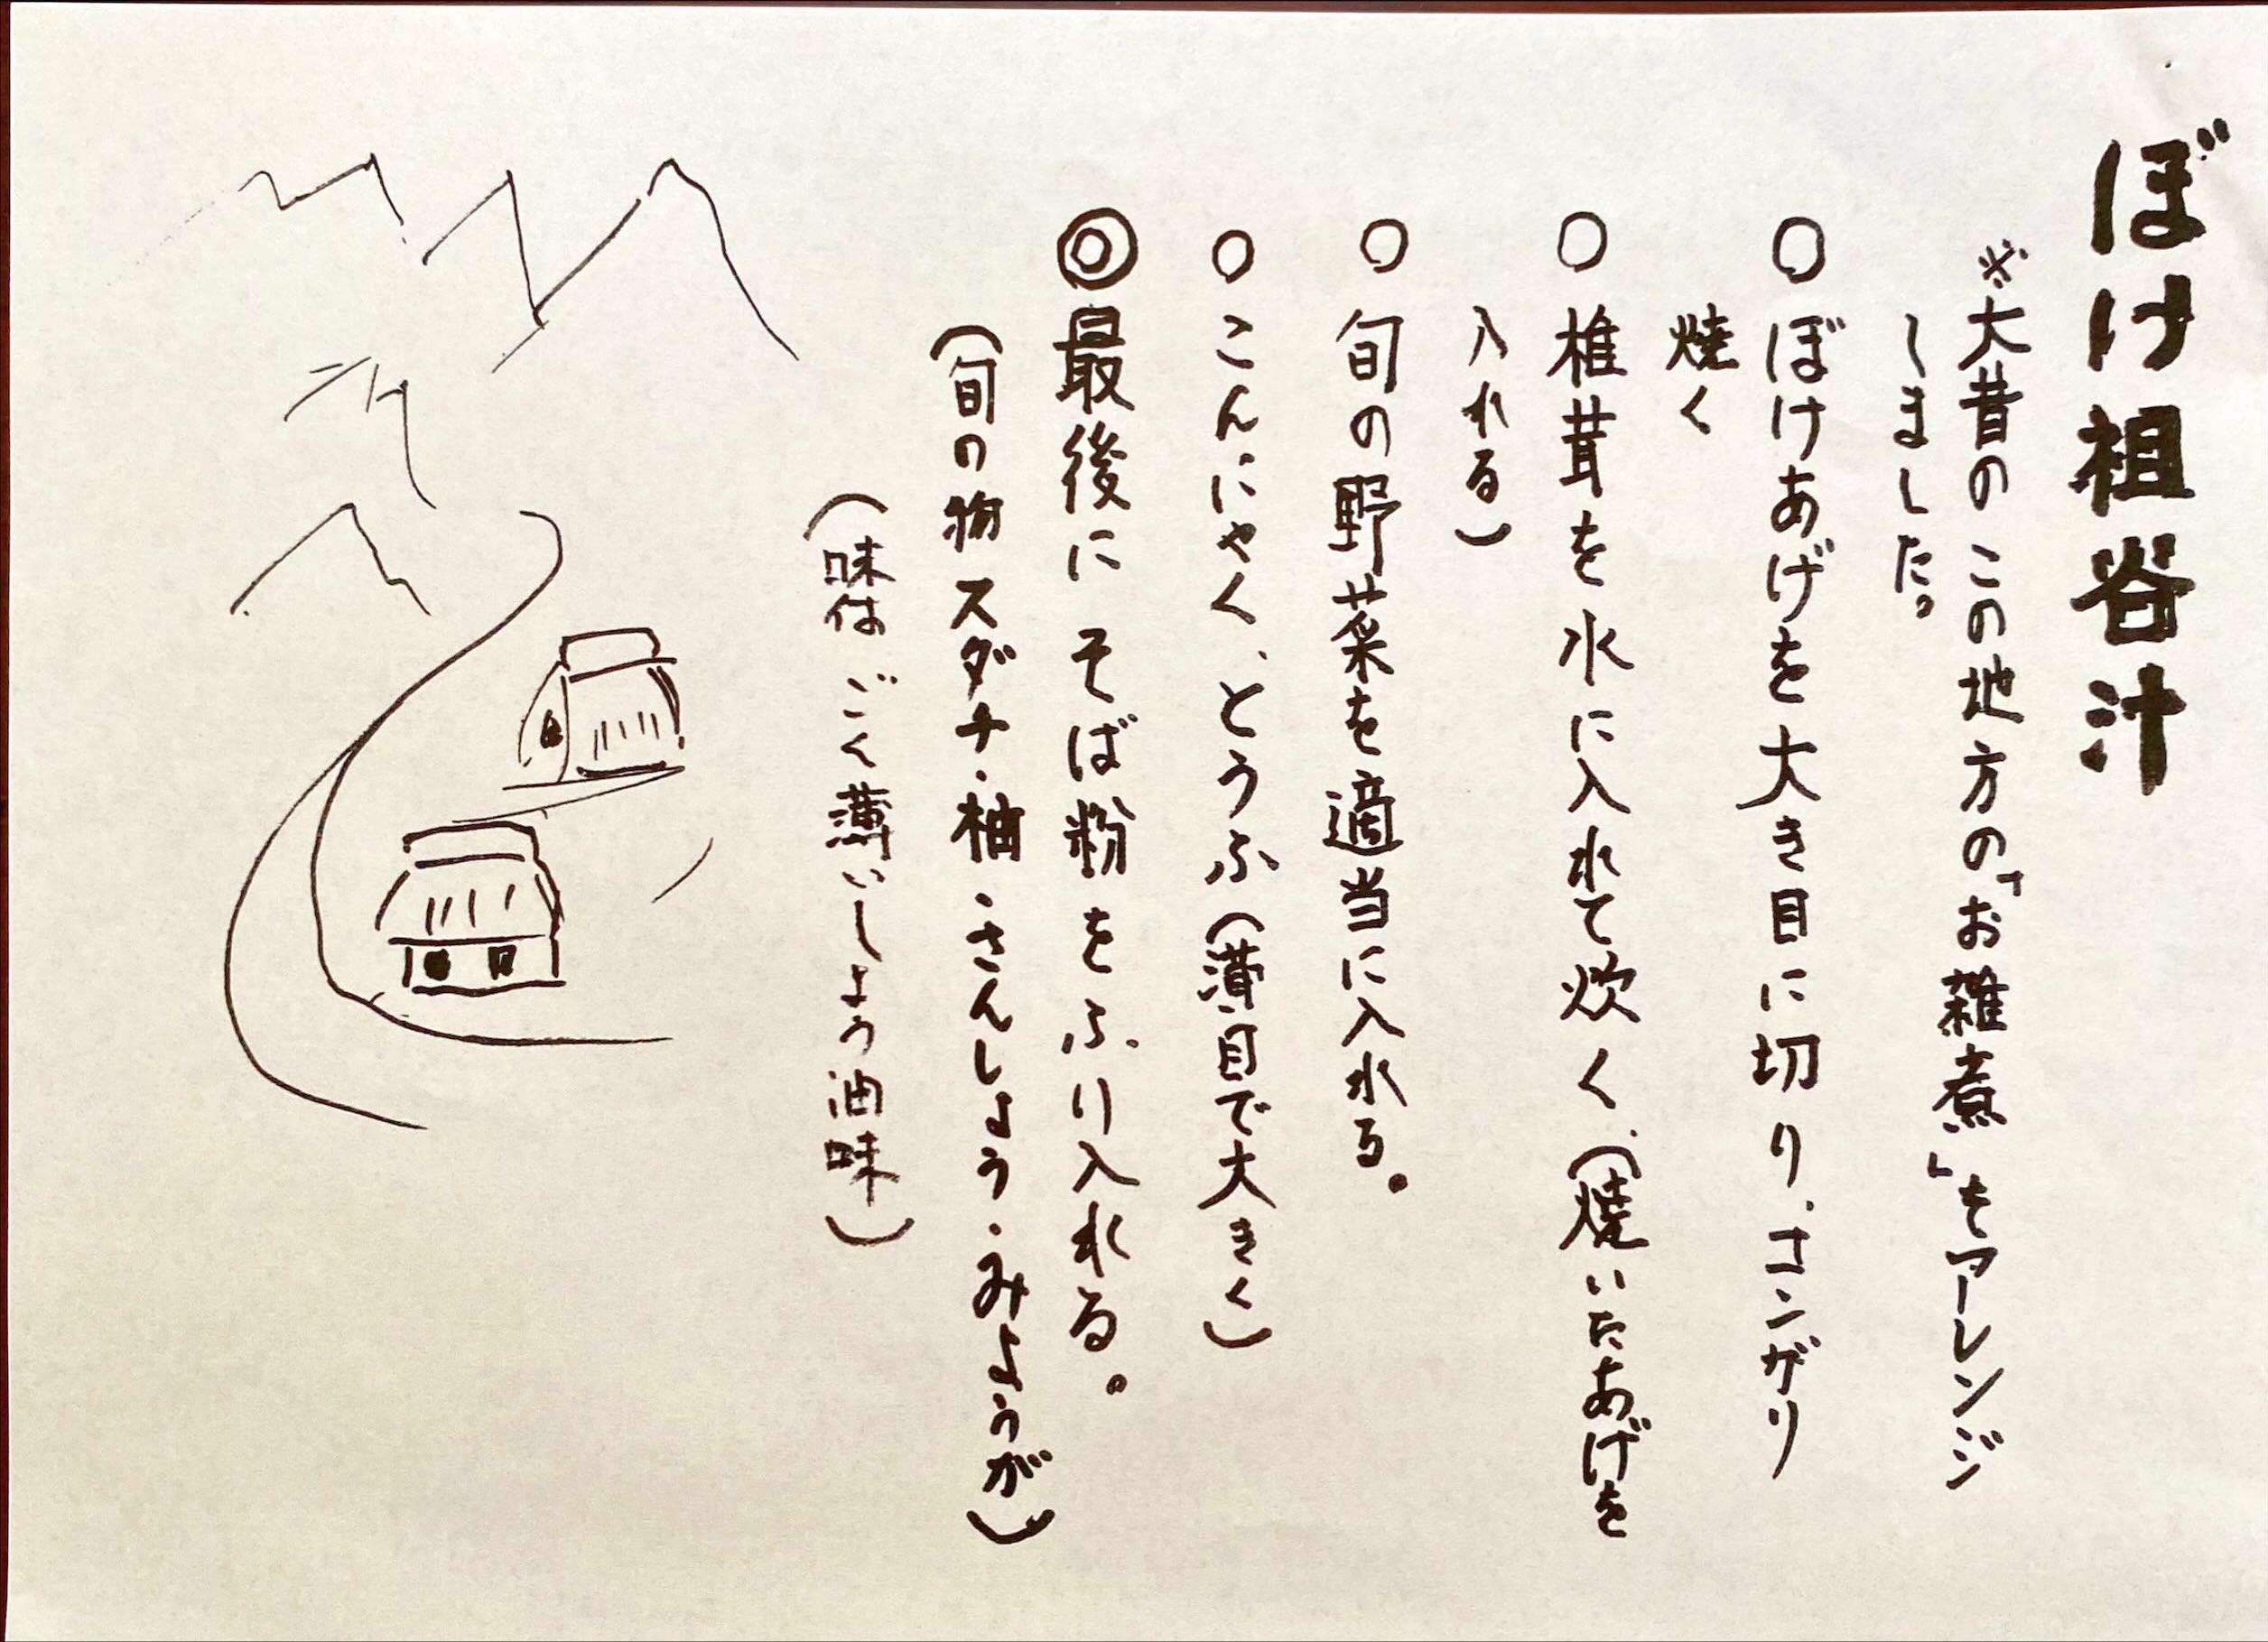 ぼけ祖谷汁
※大昔の この地方の「お雑煮」をアーレンジ
しました。
○ ぼけあげを大き目に切り、コンガリ
焼く
○ 椎茸を水に入れて炊く、(焼いたあげを
入れる)
○ 旬の野菜を適当に入れる。
○ こんにゃく、とうふ(薄目で大きく)
◎ 最後に そば粉をふり入れる。
(旬の物スダチ・柚・さんしょう・みょうが)
(味は ごく薄いしょう油味)